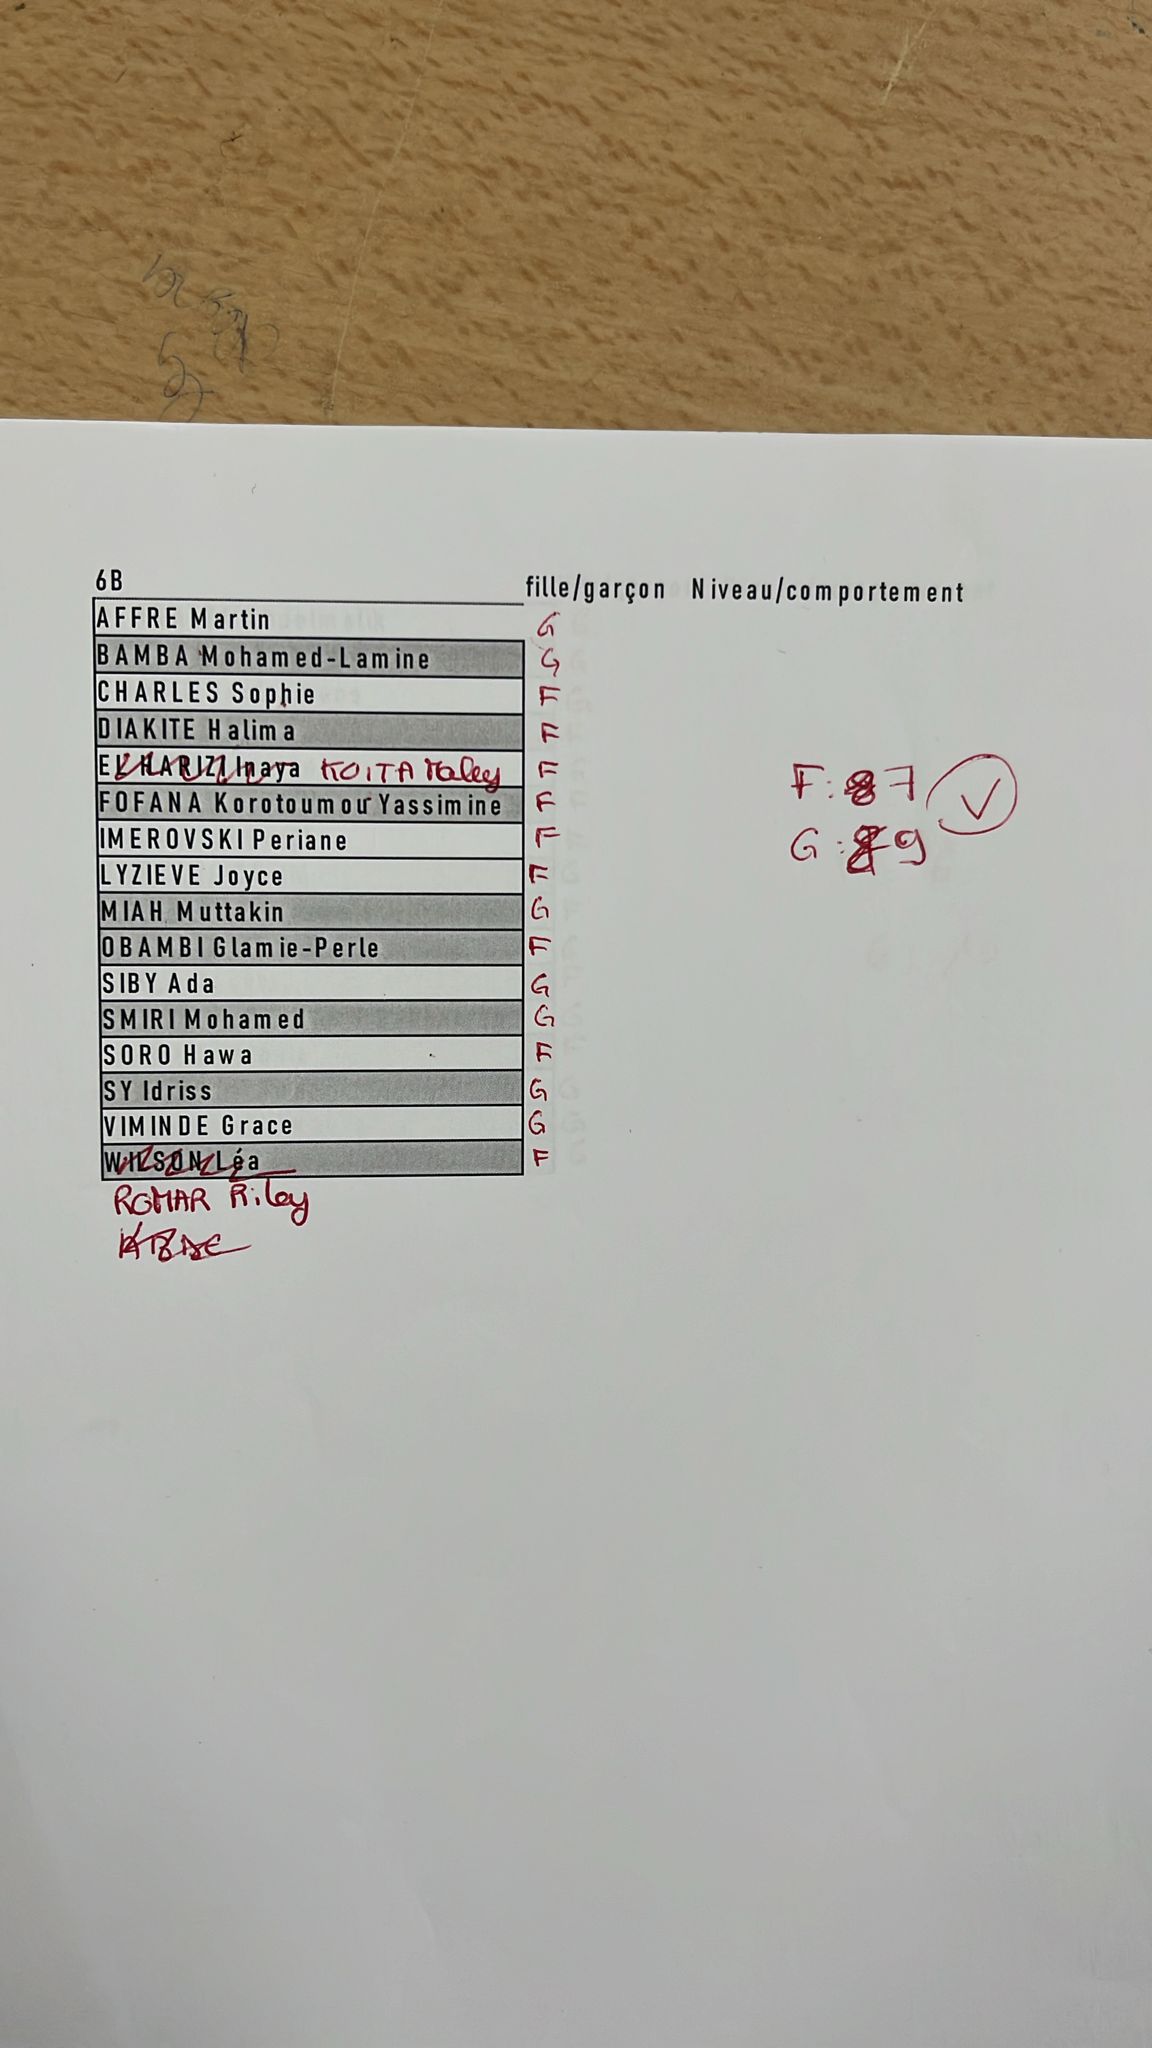 6B fille/garçon Niveau/comportement
AFFRE Martin G
BAMBA Mohamed-Lamine G
CHARLES Sophie F
DIAKITE Halima F
EL HARIZI Inaya KOITA F
FOFANA Korotoumou Yassimine F
IMEROVSKI Periane F
LYZIEVE Joyce F
MIAH Muttakin G
OBAMBI Glamie-Perle F
SIBY Ada G
SMIRI Mohamed G
SORO Hawa F
SY Idriss G
VIMINDE Grace G
WILSON Léa F
ROMAR Riley
F: 7
G: 9